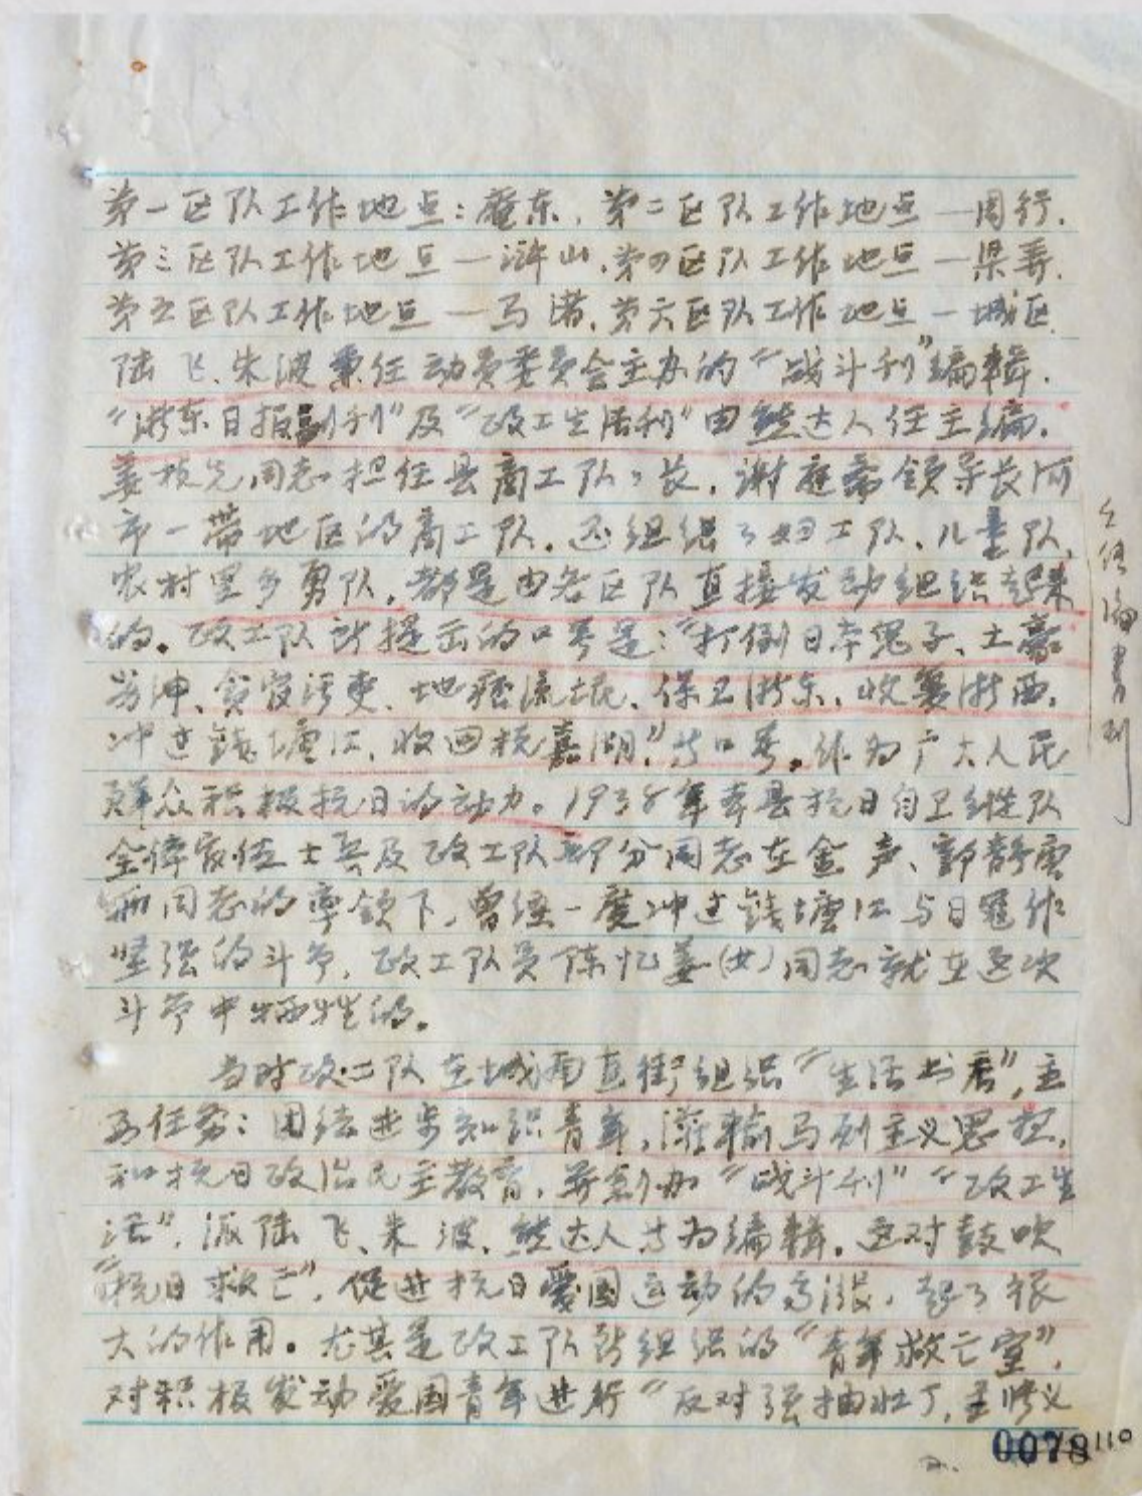 第一区队工作地点：庵东，第二区队工作地点—周行，
第三区队工作地点—浒山，第四区队工作地点—梁弄，
第五区队工作地点—马渚，第六区队工作地点—城区
陆飞、朱波兼任动员委员会主办的“战斗刊”编辑，
“浙东日报副刊”及“政工生活刊”由熊达人任主编。
姜枝先同志担任县商工队队长，谢庭斋领导长河
市一带地区的商工队。还组织了妇工队、儿童队，
农村里乡勇队，都是由各区队直接发动组织起来
的。政工队所提出的口号是：“打倒日本鬼子、土豪
劣绅、贪官污吏、地痞流氓、保卫浙东，收复浙西，
冲过钱塘江，收回杭嘉湖”等口号。作为广大人民
群众积极抗日的动力。1938年本县抗日自卫纵队
全体官佐士兵及政工队部分同志在金声、郭静唐
两同志的率领下，曾经一度冲过钱塘江与日寇作
坚强的斗争，政工队员陈忆姜（女）同志就在这次
斗争中牺牲的。
当时政工队在城南直街组织“生活书店”，主
要任务：团结进步知识青年，灌输马列主义思想，
和抗日政治民主教育，并创办“战斗刊”“政工生
活”，派陆飞、朱波、熊达人等为编辑。这对鼓吹
“抗日救亡”，促进抗日爱国运动的高涨，起了很
大的作用。尤其是政工队所组织的“青年救亡室”，
对积极发动爱国青年进行“反对强抽壮丁，主义
宣传编书刊
0078
110
2.